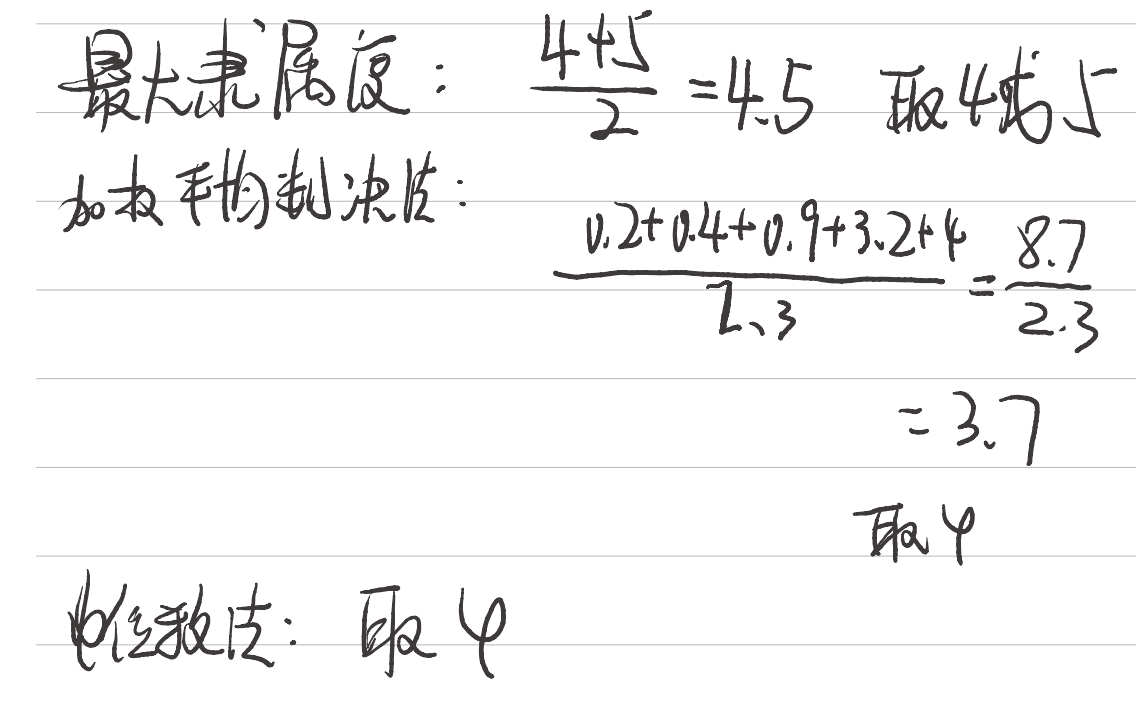 最大隶属度: (4+5)/2 =4.5 取4或5
加权平均判决法:
(0.2+0.4+0.9+3.2+4)/2.3 = 8.7/2.3
= 3.7
取4
中位数法: 取4